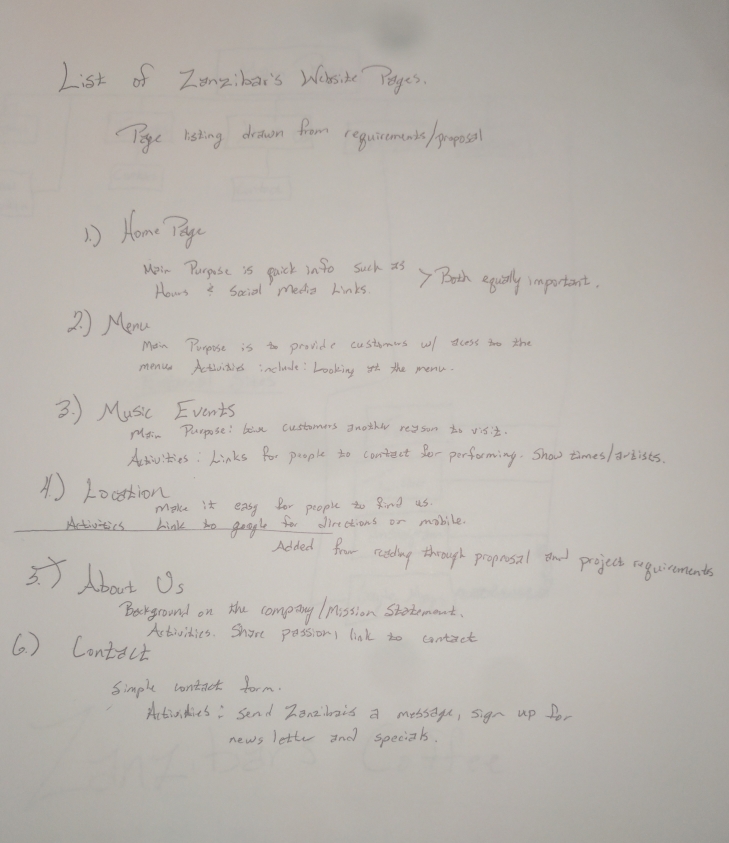 List of Zanzibar's Website Pages.
Page listing drawn from requirements/proposal
1.) Home Page
Main Purpose is quick info such as > Both equally important.
Hours & Social Media Links
2.) Menu
Main Purpose is to provide customers w/ acess to the
menu Activities include: Looking at the menu.
3.) Music Events
Main Purpose: customers another reason to visit.
Activities: Links for people to contact for performing. Show times/artists.
4.) Location
Make it easy for people to find us.
Activities Link to google for directions on mobile.
Added from reading through proprosal and project requirements
5.) About Us
Background on the company/Mission Statement.
Activities. Share passion, link to contact
6.) Contact
Simple contact form.
Activities: Send Zanzibar's a message, sign up for
news letter and specials.
Zanzibar's Coffee